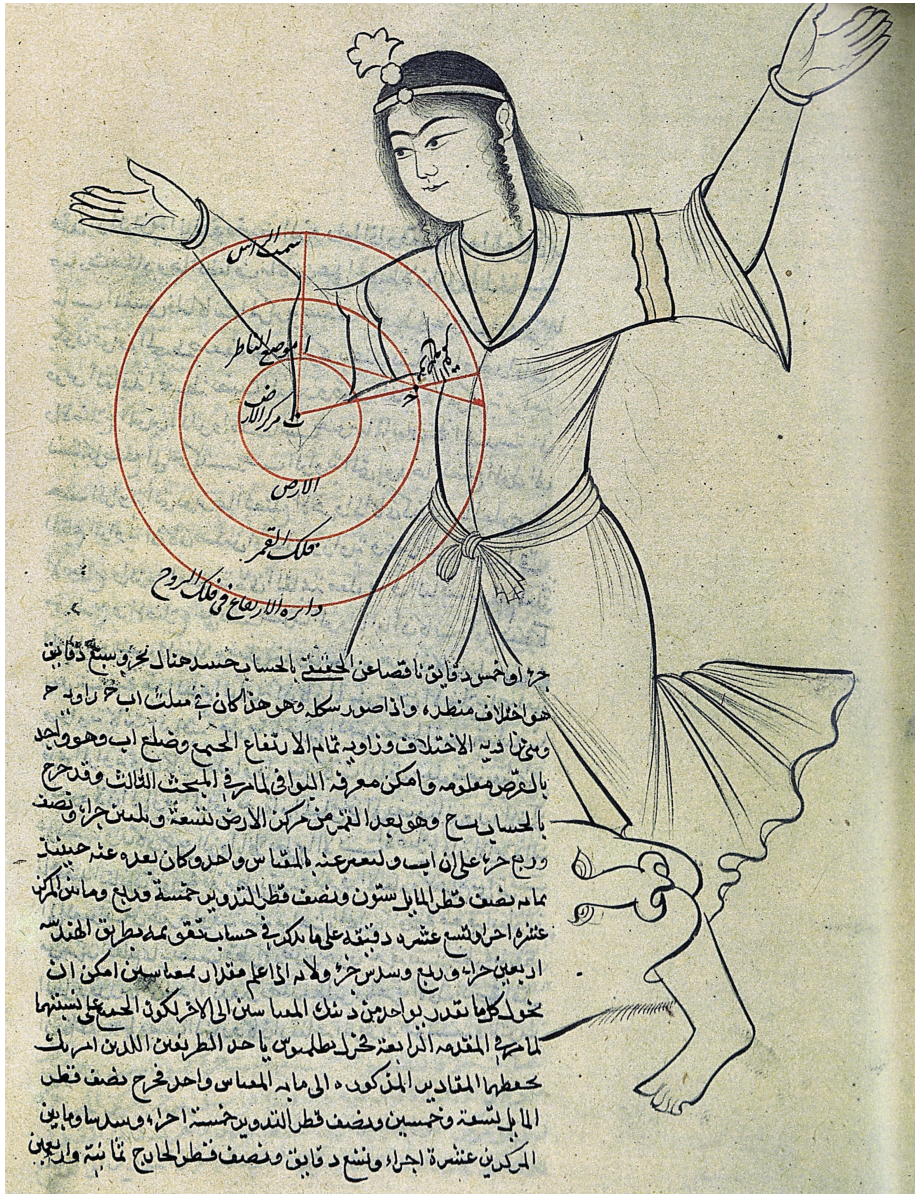 سمت الراس
موضع الناظر
ا
مركز الارض
ب
الارض
فلك القمر
دائرة الارتفاع فى فلك البروج
جزء او خمس دقايق ناقصا عن الحقيقى بالحساب جزء وسبع دقايق
هو اختلاف منظره واذا صور شكله وهو هذا كان فى مثلث اب ح زاوية ح
وهى زاوية الاختلاف وزاوية تمام الارتفاع وضلع اب وهو واحد
بالفرض معلومه وامكن معرفة البواقى لما مر فى المبحث الثالث وقد خرج
بالحساب ب ح وهو بعد القمر من مركز الارض تسعة وثلثين جزاء ونصف
وربع جزء على ان اب ولنعبر عنه بالمقياس واحد وكان بعده عنه حينئذ
بما به نصف قطر المايل ستون ونصف قطر التدوير خمسة وربع وما بين المركزين
عشرة اجزاء وتسع عشره دقيقه على ما يذكر فى حساب تقويمه بطريق الهندسه
اربعين جزاء وربع وسدس جزء ولانه اذا علم مقدار بمقياسين امكن ان
يحول كل ما يقدر بواحد من ذينك المقياسين الى الاخر لكون الجميع على نسبتهما
لما مر فى المقدمه الرابعة فحول بطلميوس باحد الطريقين اللذين
المقادير المذكوره الى ما به المقياس واحد فخرج نصف قطر
المايل تسعة وخمسين ونصف قطر التدوير خمسة اجزاء وسدسا وما بين
المركزين عشرة اجزاء وتسع دقايق ونصف قطر الخارج ثمانية واربعين